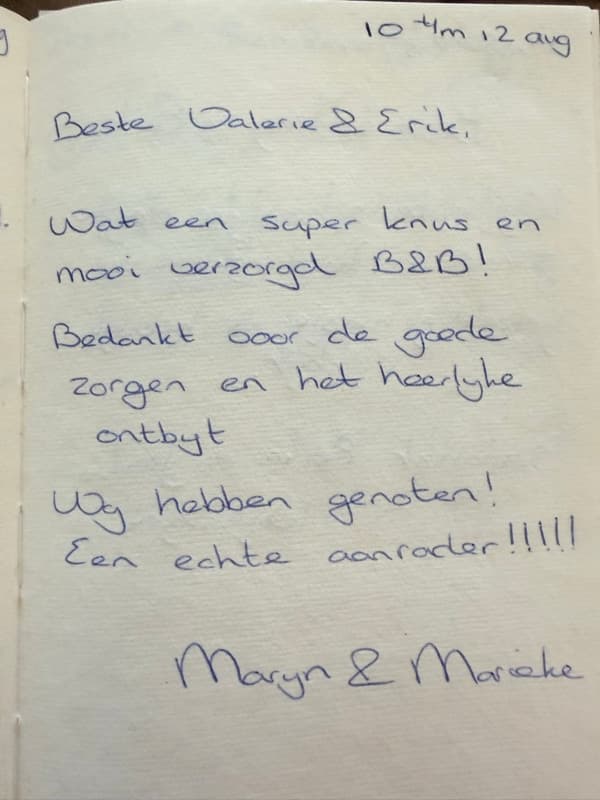 10 t/m 12 aug
Beste Valerie & Erik,
Wat een super knus en
mooi verzorgd B&B!
Bedankt voor de goede
zorgen en het heerlyke
ontbyt
Wy hebben genoten!
Een echte aanrader!!!!!
Maryn & Marieke